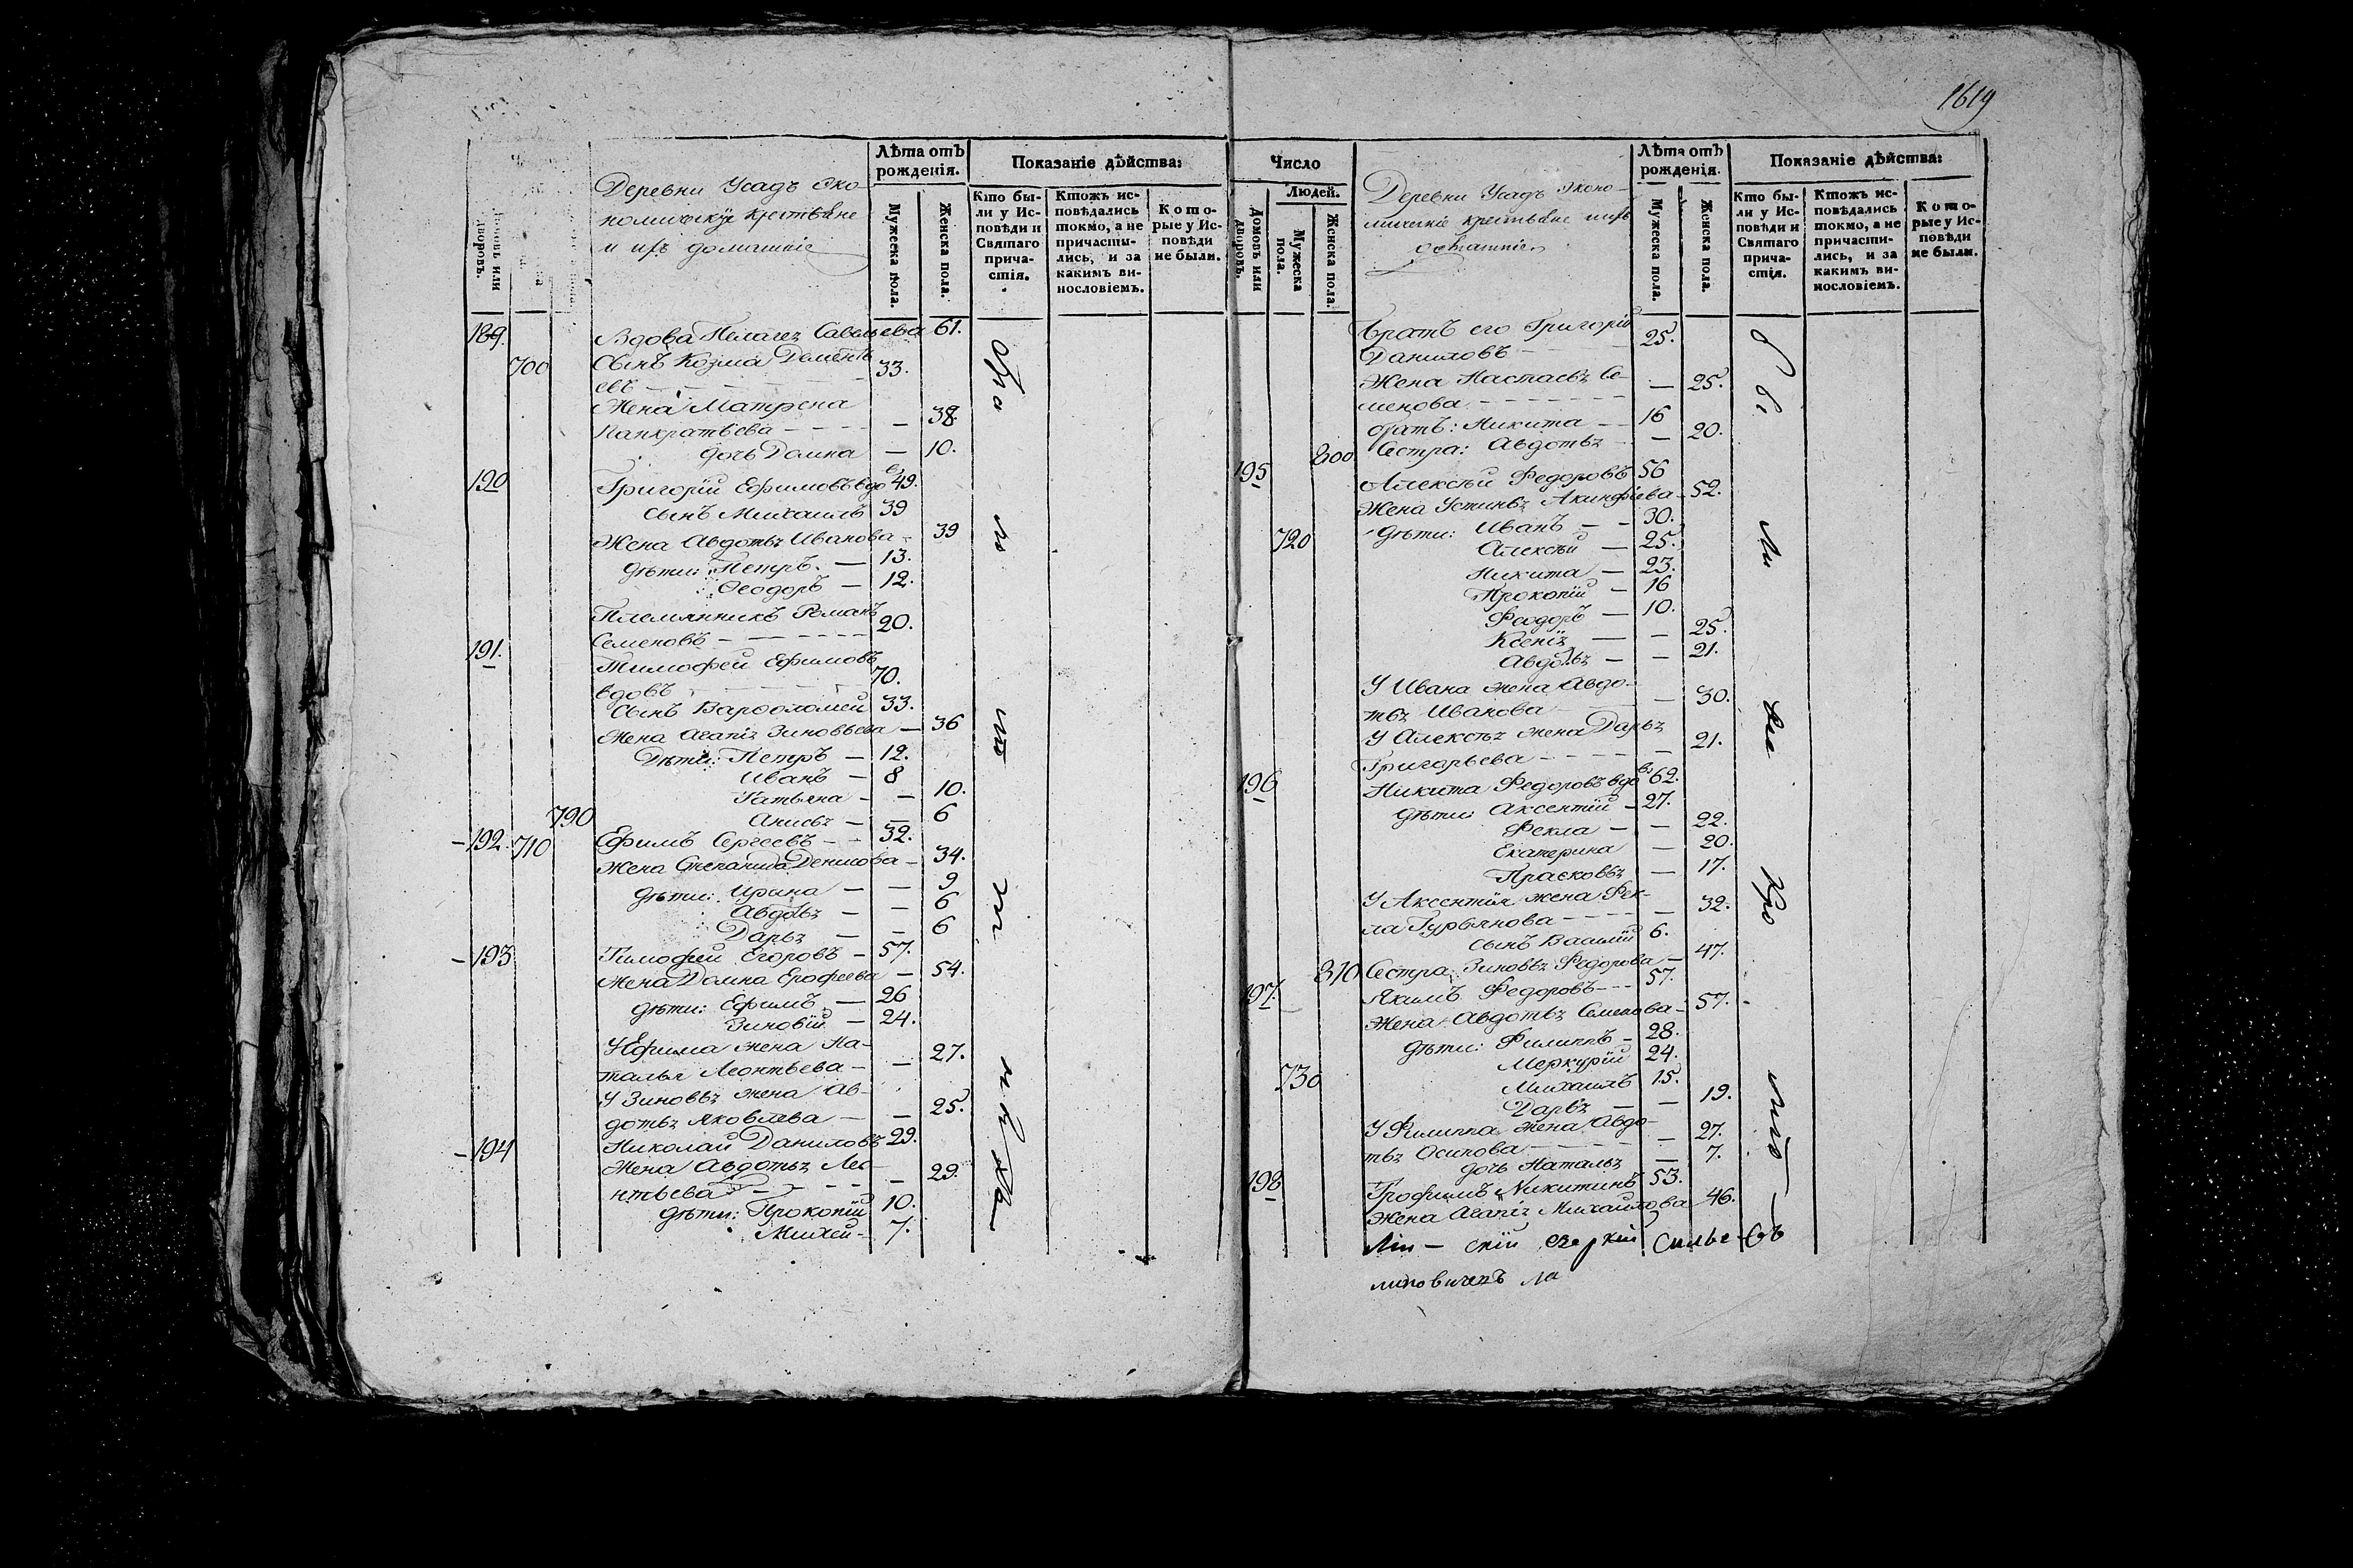 1619
Лѣта отъ рожденія.
Показаніе дѣйства:
домовъ или дворовъ.
Мужеска пола.
Женска пола.
Кто бы-
ли у Ис-
повѣди и
Святаго
прича-
стія.
Ктожъ ис-
повѣдались
токмо, а не
причасти-
лись, и за
какимъ ви-
нословіемъ.
Кото-
рые у Ис-
повѣди
не были.
Деревни Усадъ Эко-
номическіе крестьяне
и ихъ домашніе
189. Вдова Пелагея Савельева 61.
700 Сынъ Козма Дементь 33.
евъ
Жена Матрена
Панкратьева — 38
Дочь Домна — 10.
190 Григорій Ефимовъ вдовъ 49.
Сынъ Михаилъ 39
Жена Авдотья Иванова — 39
Дѣти: Петръ — 13.
Ѳеодоръ — 12.
Племянникъ Романъ
Семеновъ 20.
191. Тимофей Ефимовъ
вдовъ 70.
Сынъ Варѳоломей 33.
Жена Агапія Зиновьева — 36
Дѣти: Петръ — 12.
Иванъ — 8
Татьяна — — 10.
790 Анисья — — 6
192. 710 Ефимъ Сергеевъ — 32.
Жена Степанида Денисова — 34.
Дѣти: Ирина — — 9
Авдотья — — 6
Дарья — — 6
193 Тимофей Егоровъ — 57.
Жена Домна Ерофеева — 54.
Дѣти: Ефимъ — 26
Зиновій — 24.
У Ефима жена На-
талья Леонтьева — — 27.
У Зиновья жена Ав-
дотья Яковлева — — 25.
194 Николай Даниловъ 29.
Жена Авдотья Лео-
нтьева — 29.
Дѣти: Прокопій 10.
Михей — 7.
Число
Людей.
Домовъ или дворовъ.
Мужеска пола.
Женска пола.
Лѣта отъ рожденія.
Показаніе дѣйства:
Мужеска пола.
Женска пола.
Кто бы-
ли у Ис-
повѣди и
Святаго
прича-
стія.
Ктожъ ис-
повѣдались
токмо, а не
причасти-
лись, и за
какимъ ви-
нословіемъ.
Кото-
рые у Ис-
повѣди
не были.
Деревни Усадъ Эконо-
мическіе крестьяне и ихъ
домашніе
Братъ его Григорій
Даниловъ — 25.
Жена Настасья Се-
менова — 25.
братъ: Никита — 16
800 Сестра: Авдотья — 20.
195 Алексѣй Федоровъ 56
Жена Устинья Акинфіева 52.
Дѣти: Иванъ — 30.
720 Алексѣй — 25.
Никита — 23.
Прокопій — 16
Ѳеодоръ — 10.
Ксенія — — 25.
Авдотья — — 21.
У Ивана жена Авдо-
тья Иванова — 30.
У Алексѣя жена Дарья
Григорьева — 21.
196 Никита Федоровъ вдовъ 62.
Дѣти: Аксентій — 27.
Фекла — — 22.
Екатерина — 20.
Прасковья — 17.
У Аксентія жена Фек-
ла Гурьянова — 32.
Сынъ Василій 6.
810 Сестра Зиновья Федорова — 47.
197. Якимъ Федоровъ — 57.
Жена Авдотья Семенова — 57.
Дѣти: Филиппъ — 28.
Меркурій 24.
730 Михаилъ 15.
Дарья — — 19.
У Филиппа жена Авдо-
тья Осипова — 27.
Дочь Наталья — 7.
198 Трофимъ Никитинъ 53.
Жена Агапія Михайлова 46.